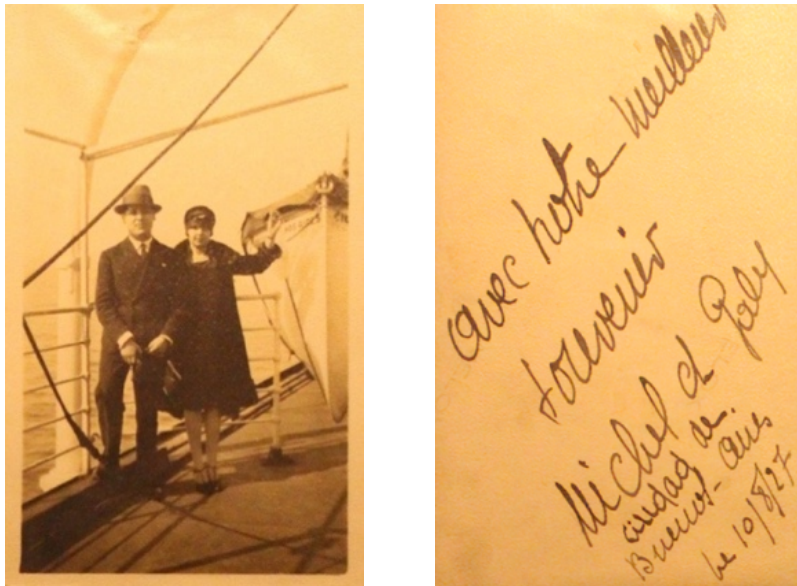 avec notre meilleur
souvenir
Michel et Gaby
ciudad de
Buenos-Aires
le 10/8/27